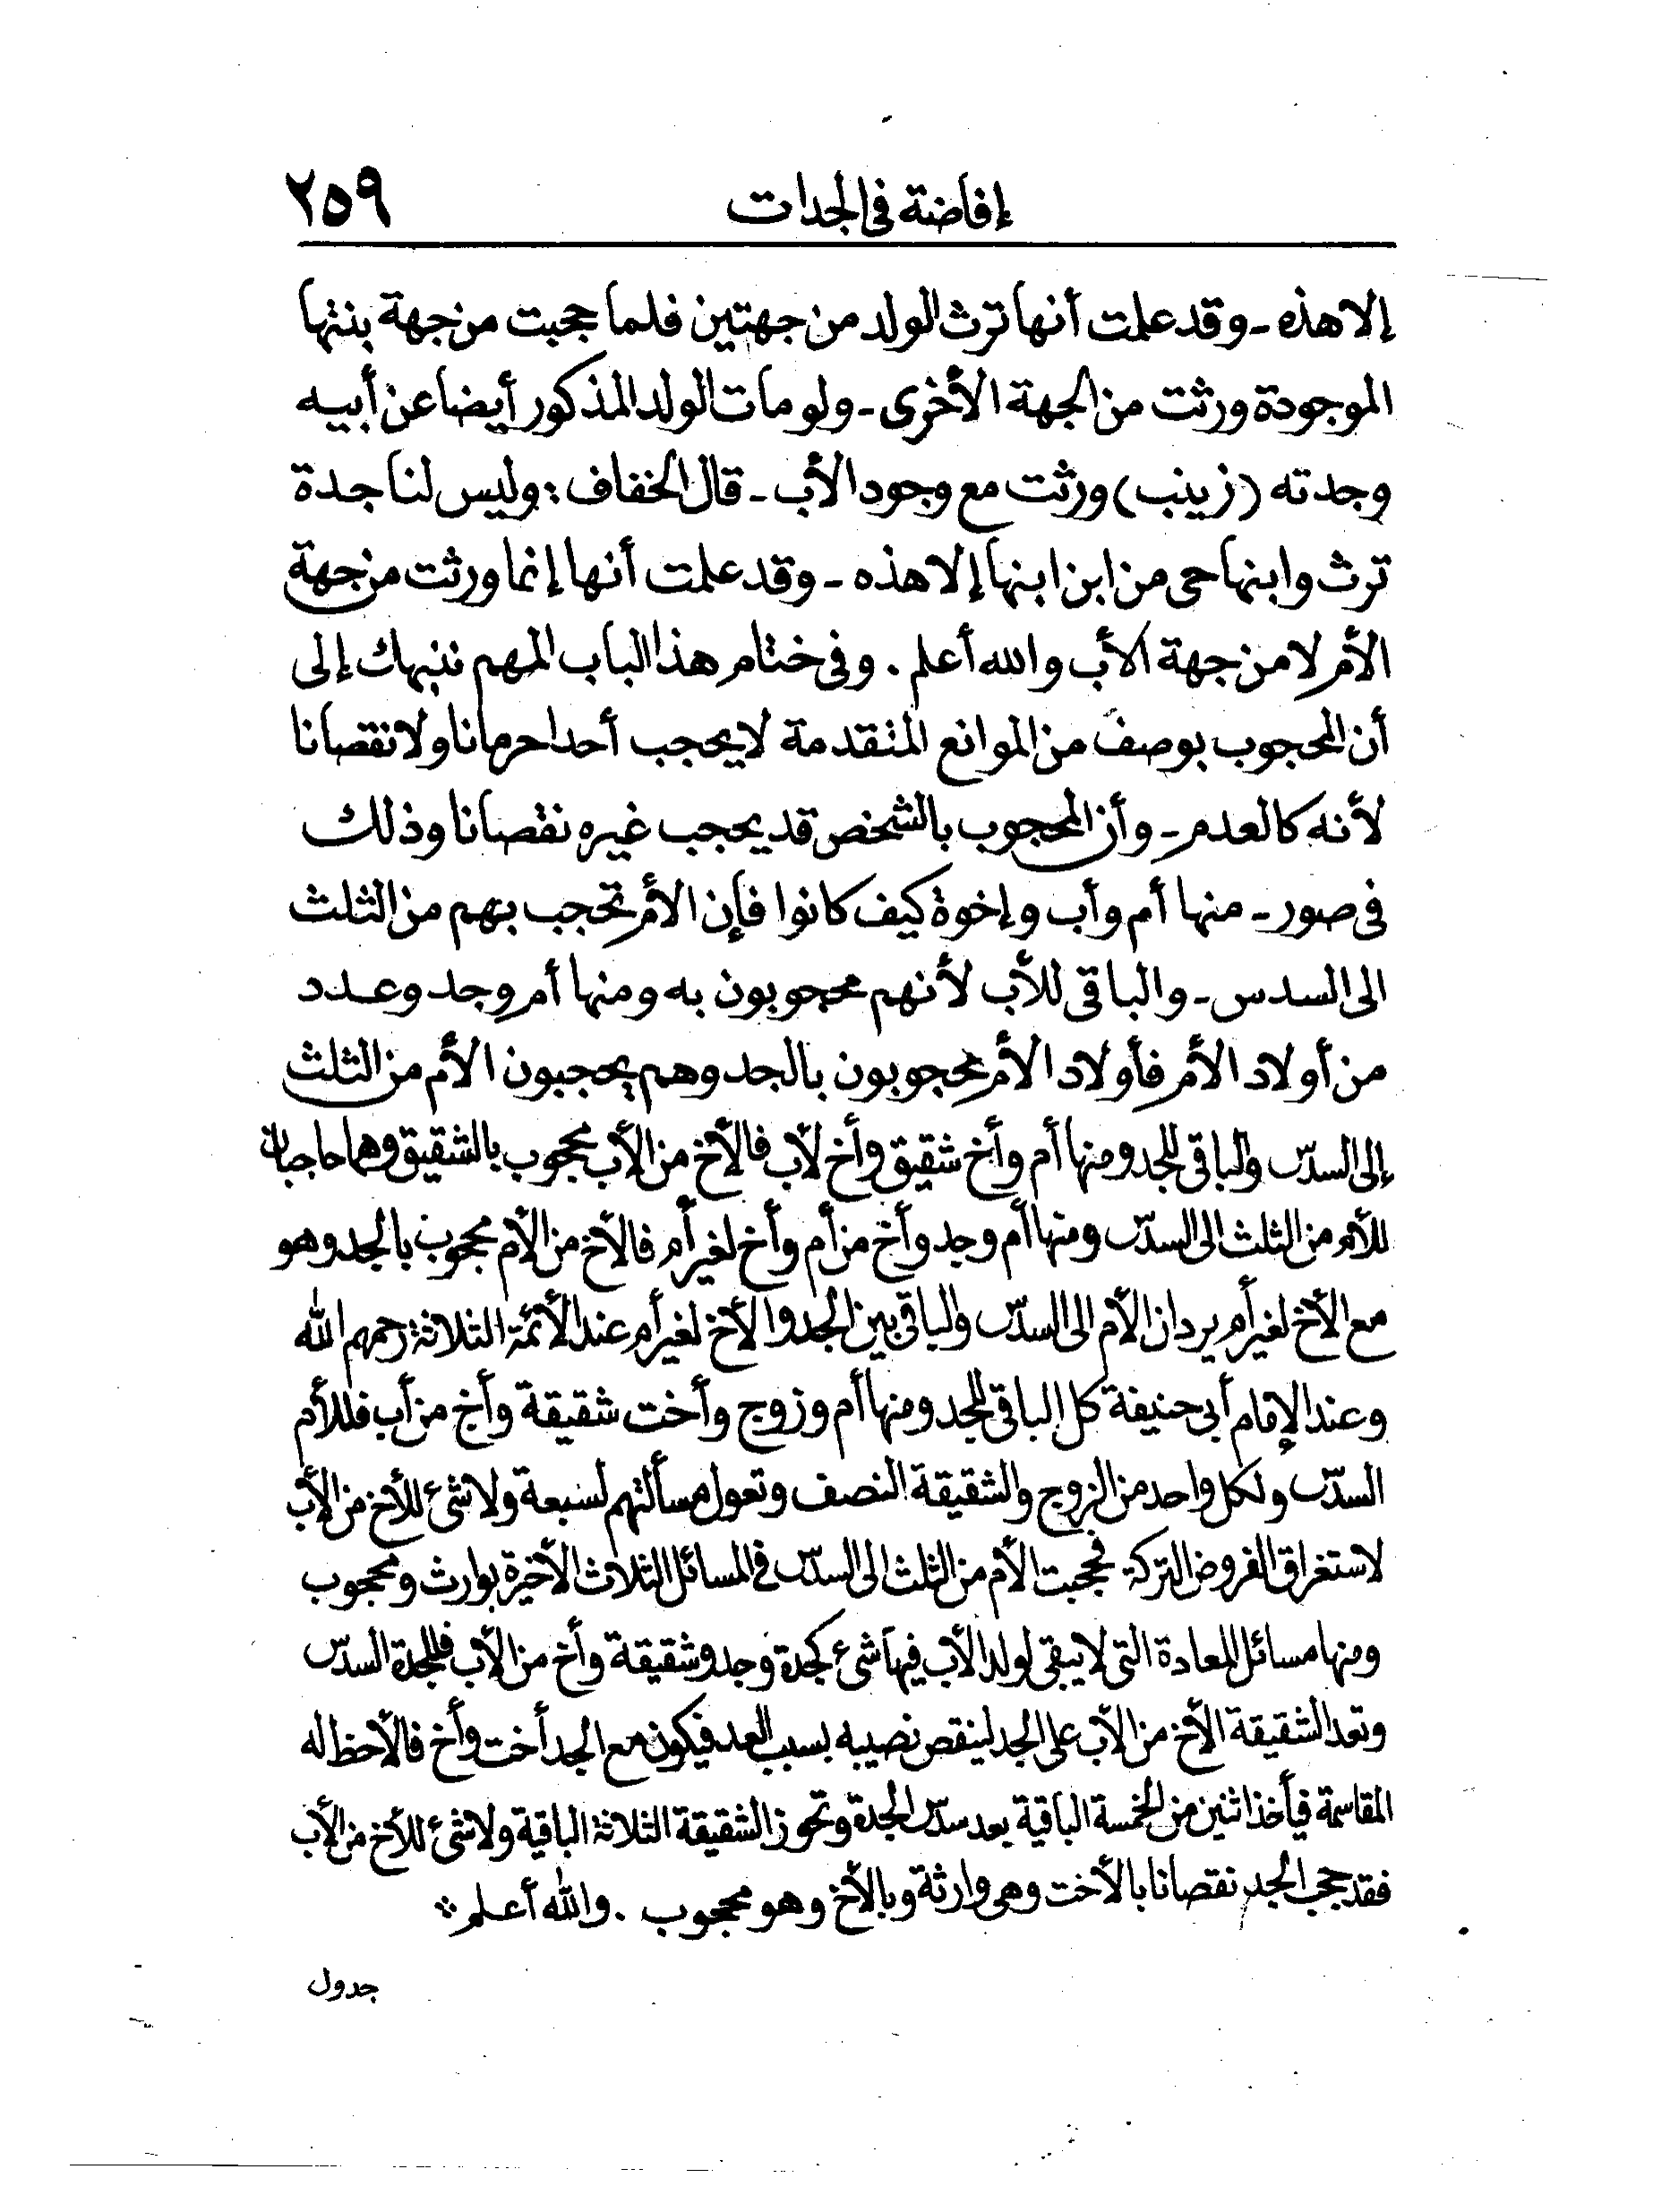 إفاضة في الجدات ٢٥٩
إلا هذه - وقد علمت أنها ترث الولد من جهتين فلما حجبت من جهة بنتها
الموجودة ورثت من الجهة الأخرى - ولو مات الولد المذكور أيضا عن أبيه
وجدته (زينب) ورثت مع وجود الأب - قال الخفاف : وليس لنا جدة
ترث وابنها حى من ابن ابنها إلا هذه - وقد علمت أنها إنما ورثت من جهة
الأم لا من جهة الأب والله أعلم . وفى ختام هذا الباب المهم ننبهك إلى
أن المحجوب بوصف من الموانع المتقدمة لا يحجب أحدا حرمانا ولا نقصانا
لأنه كالعدم - وأن المحجوب بالشخص قد يحجب غيره نقصانا وذلك
فى صور - منها أم وأب وإخوة كيف كانوا فإن الأم تحجب بهم من الثلث
الى السدس - والباقى للأب لأنهم محجوبون به ومنها أم وجد وعدد
من أولاد الأم فأولاد الأم محجوبون بالجد وهم يحجبون الأم من الثلث
إلى السدس والباقى للجد ومنها أم وأخ شقيق وأخ لأب فالأخ من الأب محجوب بالشقيق وهما حاجبان
للأم من الثلث الى السدس ومنها أم وجد وأخ من أم وأخ لغير أم فالأخ من الأم محجوب بالجد وهو
مع الأخ لغير أم يردان الأم الى السدس والباقى بين الجد والأخ لغير أم عند الأئمة الثلاثة رحمهم الله
وعند الإمام أبى حنيفة كل الباقى للجد ومنها أم وزوج وأخت شقيقة وأخ من أب فللأم
السدس ولكل واحد من الزوج والشقيقة النصف وتعول مسألتهم لسبعة ولا شئ للأخ من الأب
لاستغراق الفروض التركة فحجبت الأم من الثلث الى السدس فى المسائل الثلاث الأخيرة بوارث ومحجوب
ومنها مسائل المعادة التى لا يبقى لولد الأب فيها شئ كجدة وجد وشقيقة وأخ من الأب فللجدة السدس
وتعد الشقيقة الأخ من الأب على الجد لينقص نصيبه بسبب العد فيكون مع الجد أخت وأخ فالأحظ له
المقاسمة فيأخذ اثنين من الخمسة الباقية بعد سدس الجدة وتحوز الشقيقة الثلاثة الباقية ولا شئ للأخ من الأب
فقد حجب الجد نقصانا بالأخت وهى وارثة وبالأخ وهو محجوب . والله أعلم *
جدول